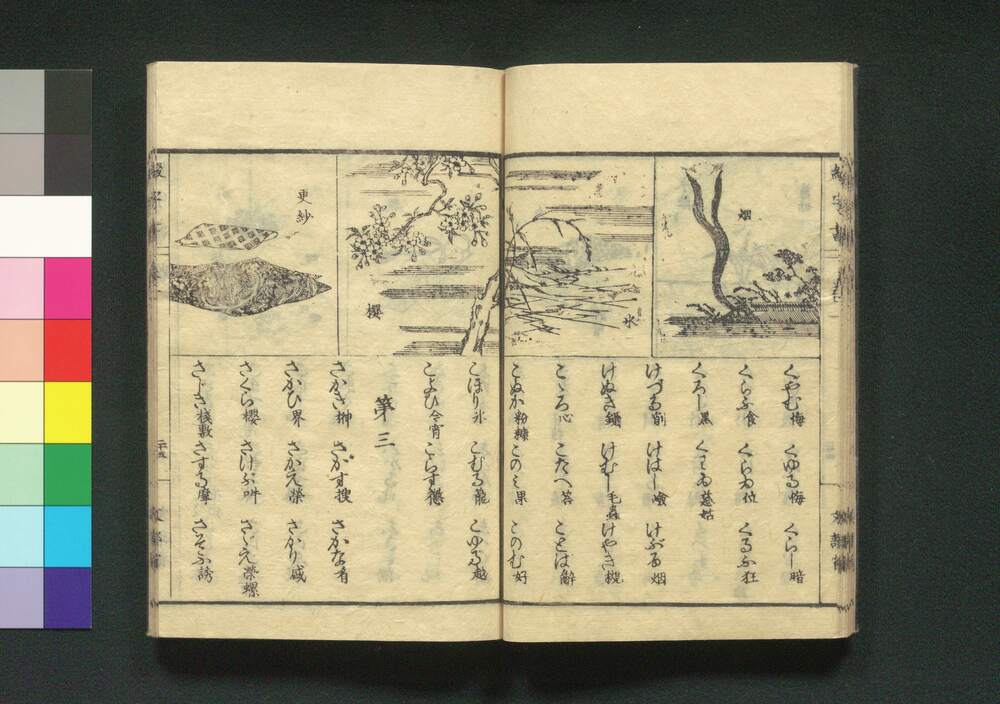 烟
氷
櫻
更紗
くやむ悔 くゆる悔 くらし暗
くらふ食 くらゐ位 くるふ狂
くろし黒 くわゐ慈姑
けづる削 けはし嶮 けぶる烟
けぬき鑷 けむし毛蟲 けやき槻
こゝろ心 こたへ答 ことは辭
こぬか粉糠 このみ果 このむ好
こほり氷 こむる籠 こゆる越
こよひ今宵 こらす懲
第三
さかき榊 さがす捜 さかな肴
さかひ界 さかえ榮 さかり盛
さくら櫻 さけぶ叫 さゞえ榮螺
さじき棧敷 さする摩 さそふ誘